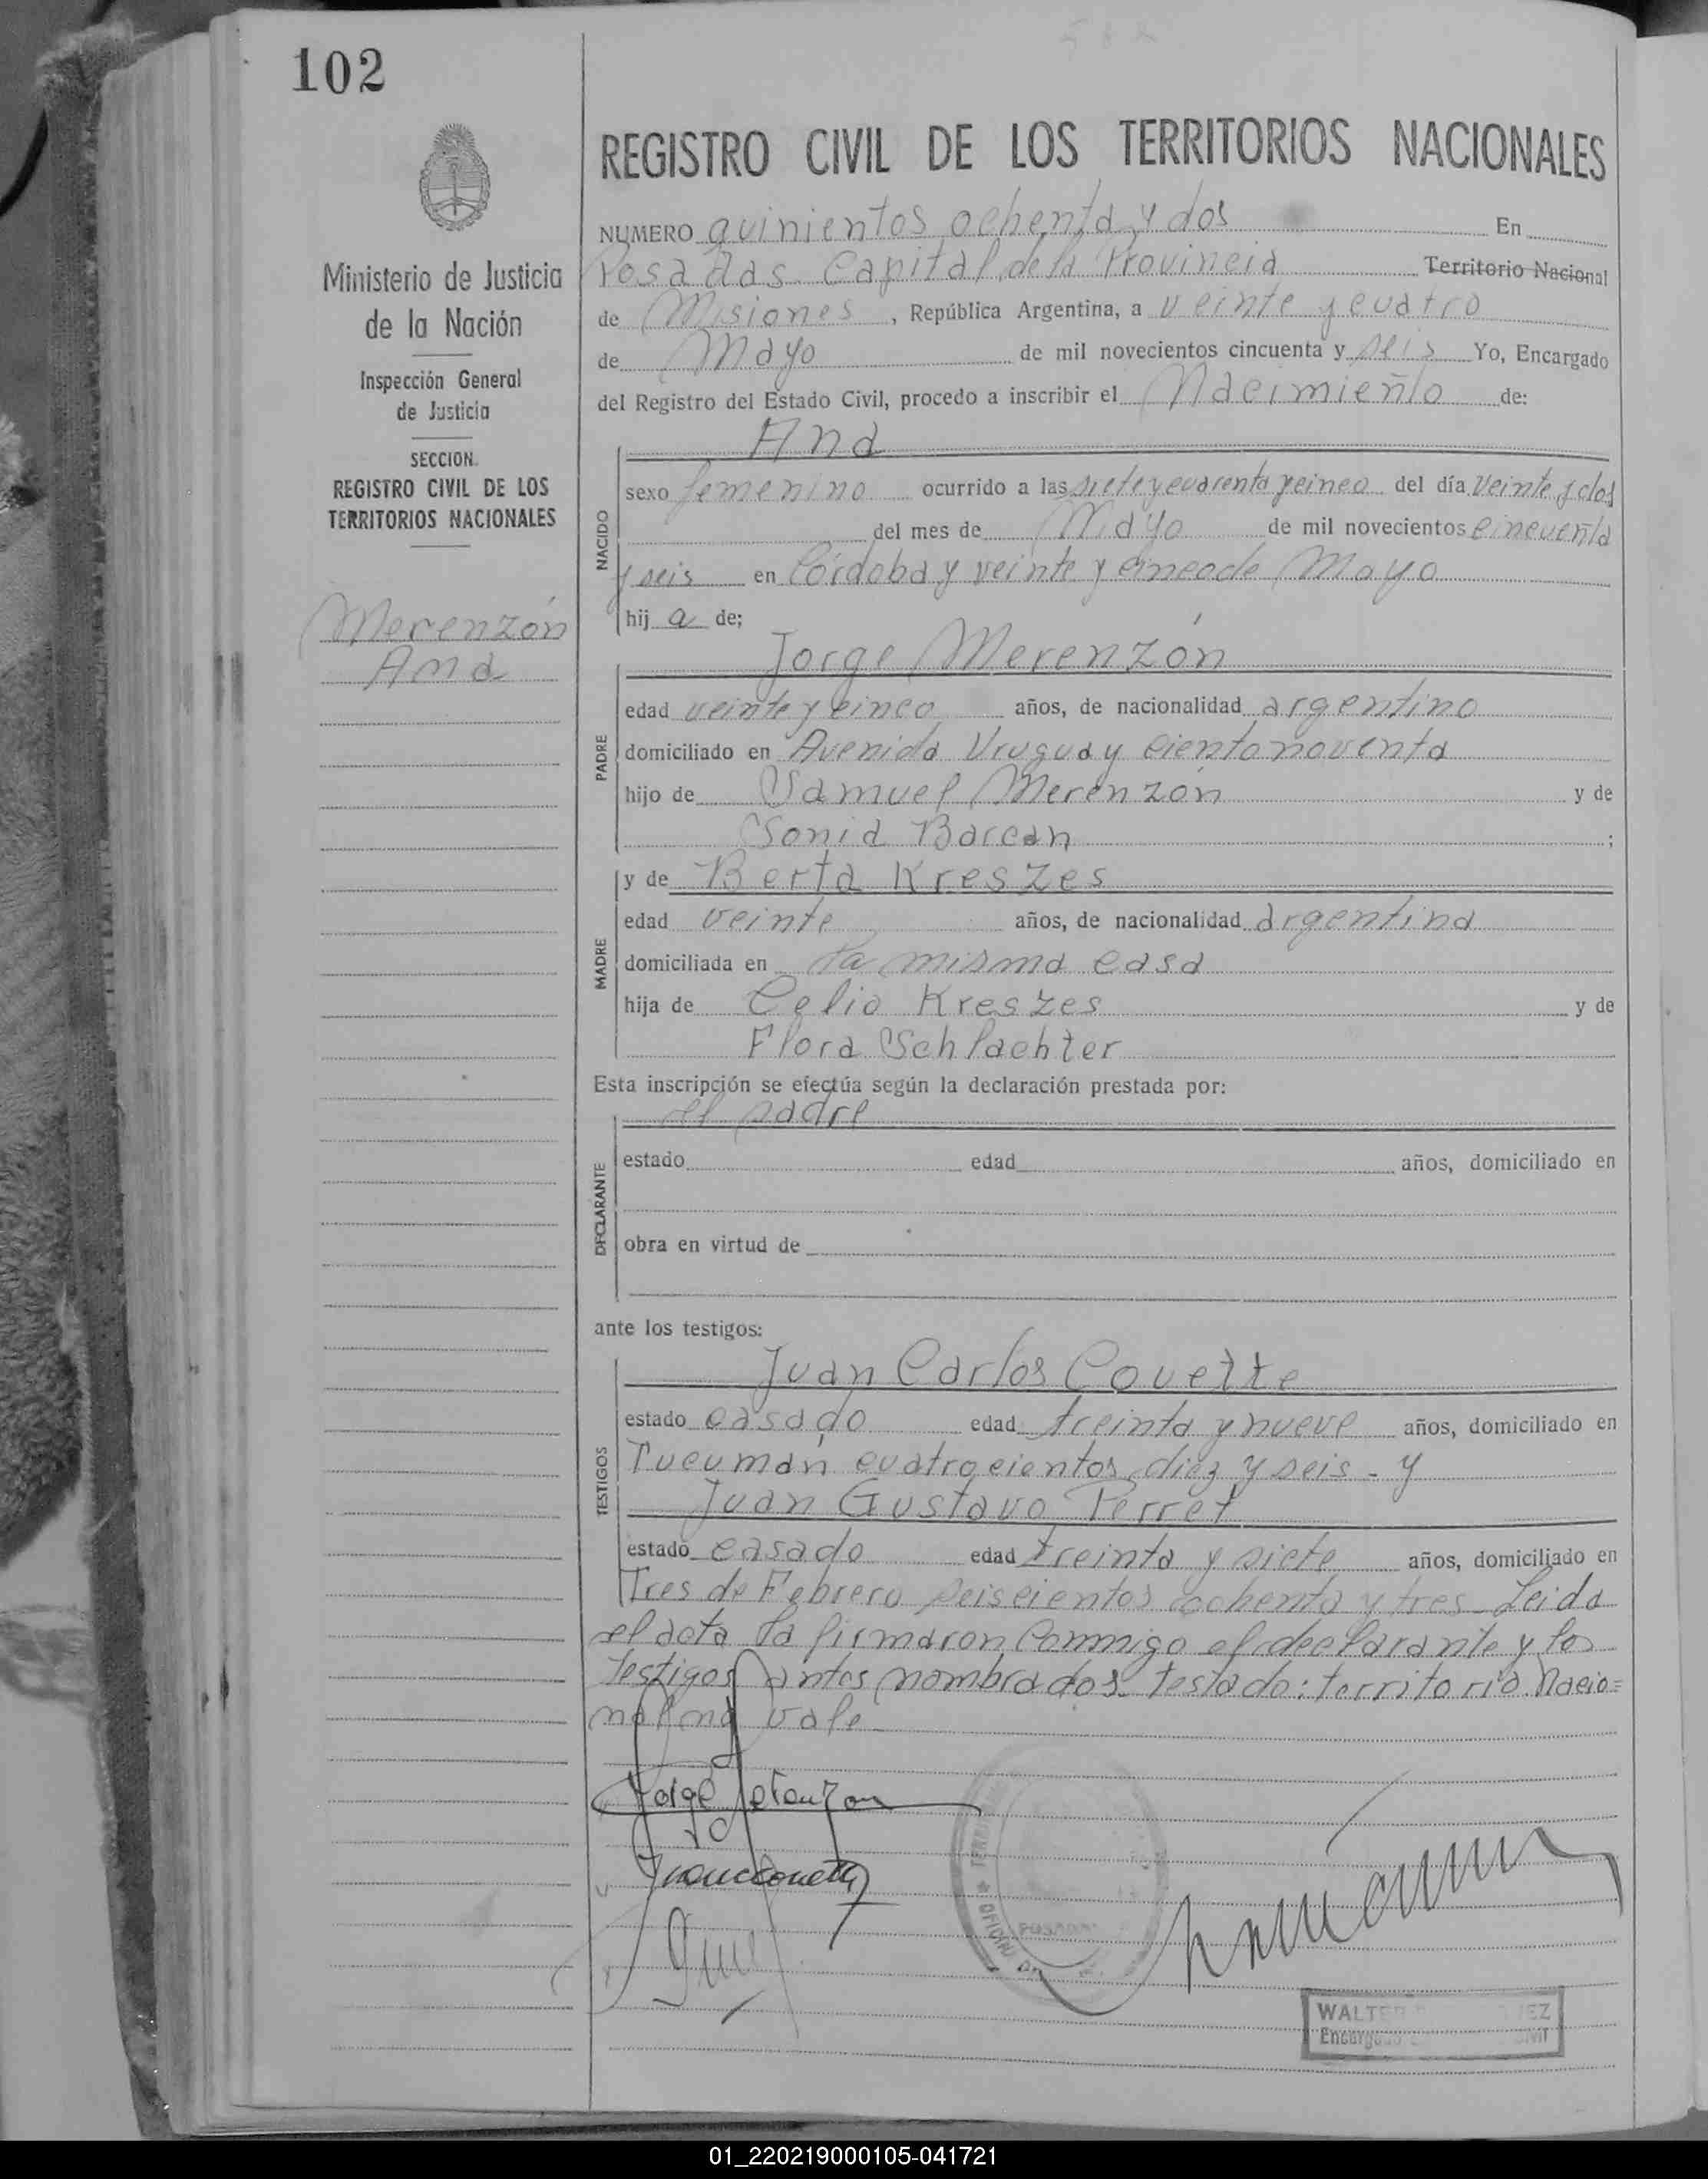 102
REGISTRO CIVIL DE LOS TERRITORIOS NACIONALES
Ministerio de Justicia
de la Nación
Inspección General
de Justicia
SECCION
REGISTRO CIVIL DE LOS
TERRITORIOS NACIONALES
Merenzón
Ana
NUMERO quinientos ochenta y dos En
Posadas Capital de la Provincia Territorio Nacional
de Misiones, República Argentina, a veinte y cuatro
de Mayo de mil novecientos cincuenta y seis Yo, Encargado
del Registro del Estado Civil, procedo a inscribir el Nacimiento de:
Ana
NACIDO
sexo femenino ocurrido a las siete y cuarenta y cinco del día veinte y dos
del mes de Mayo de mil novecientos cincuenta
y seis en Córdoba y veinte y cinco de Mayo
hij a de;
Jorge Merenzón
PADRE
edad veinte y cinco años, de nacionalidad argentino
domiciliado en Avenida Uruguay ciento noventa
hijo de Samuel Merenzón y de
Sonia Barcan ;
y de Berta Kreszes
MADRE
edad veinte años, de nacionalidad argentina
domiciliada en la misma casa
hija de Celio Kreszes y de
Flora Schlachter
Esta inscripción se efectúa según la declaración prestada por:
el padre
DECLARANTE
estado edad años, domiciliado en
obra en virtud de
ante los testigos:
Juan Carlos Couette
TESTIGOS
estado casado edad treinta y nueve años, domiciliado en
Tucumán cuatrocientos diez y seis - y
Juan Gustavo Perret
estado casado edad treinta y siete años, domiciliado en
Tres de Febrero seiscientos ochenta y tres Leida
el acta la firmaron Conmigo el declarante y los
testigos antes nombrados. Testado: territorio Nacio=
nal no vale
Jorge Merenzon
WALTER
01_220219000105-041721